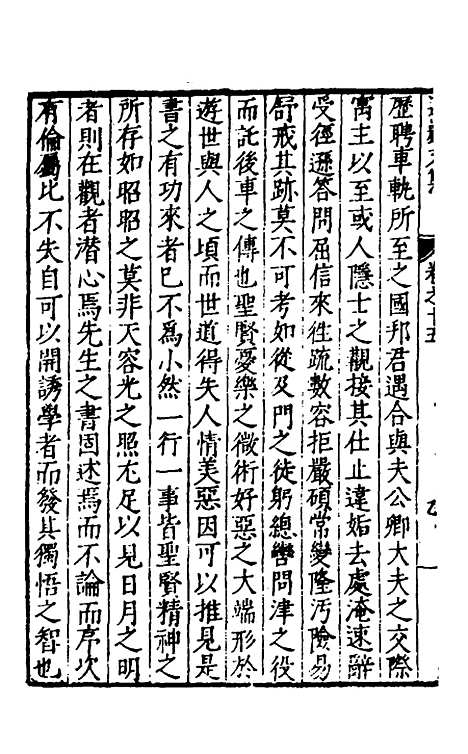 歷聘車軌所至之國邦君遇合與夫公卿大夫之交際
寓主以至或人隱士之觀接其仕止違姤去處淹速辭
受徑遜答問屈信來徃疏數容拒嚴碩常變隆汚險易
舒戒其跡莫不可考如從及門之徒躬總轡問津之役
而託後車之傳也聖賢憂樂之微術好惡之大端形於
遊世與人之頃而世道得失人情美惡因可以推見是
書之有功來者已不爲小然一行一事皆聖賢精神之
所存如昭昭之莫非天容光之照尤足以見日月之明
者則在觀者潜心焉先生之書固述焉而不論而序次
有倫屬比不失自可以開誘學者而發其獨悟之智也
卷之十五